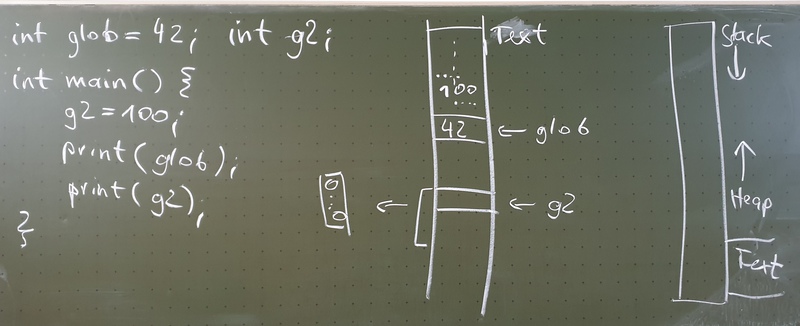 int glob = 42; int g2;
int main() {
g2 = 100;
print(glob);
print(g2);
}
Text
100
42 ← glob
0
0
← ← g2
Stack
↓
↑
Heap
Text